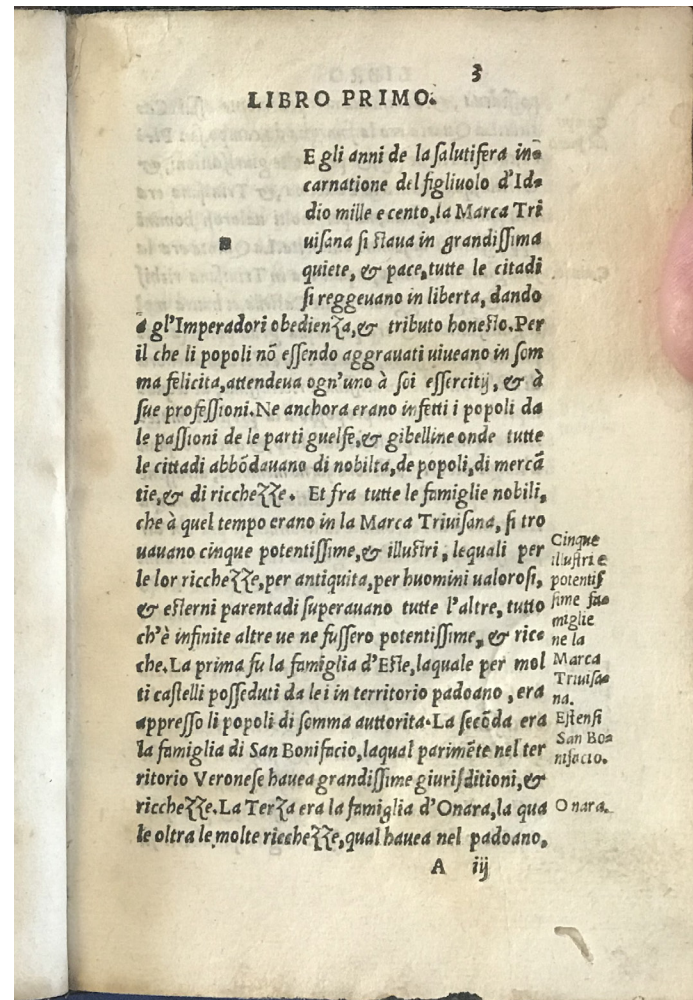 3
LIBRO PRIMO.
E gli anni de la ſalutifera in⸗
carnatione del figliuolo d'Id⸗
dio mille e cento, la Marca Tri
uiſana ſi ſtaua in grandiſſima
quiete, & pace, tutte le citadi
ſi reggeuano in liberta, dando
à gl'Imperadori obedienza, & tributo honeſto. Per
il che li popoli nõ eſſendo aggrauati uiueano in ſom
ma felicita, attendeua ogn'uno à ſoi eſſercitij, & à
ſue profeſſioni. Ne anchora erano infetti i popoli da
le paſſioni de le parti guelfe, & gibelline onde tutte
le cittadi abbõdauano di nobilta, de popoli, di mercã
tie, & di ricchezze. Et fra tutte le famiglie nobili,
che à quel tempo erano in la Marca Triuiſana, ſi tro
uauano cinque potentiſſime, & illuſtri, lequali per
le lor ricchezze, per antiquita, per huomini ualoroſi,
& eſterni parentadi ſuperauano tutte l'altre, tutto
ch'è infinite altre ue ne fuſſero potentiſſime, & ric⸗
che. La prima fu la famiglia d'Eſte, laquale per mol
ti caſtelli poſſeduti da lei in territorio padoano, era
appreſſo li popoli di ſomma auttorita. La ſecõda era
la famiglia di San Bonifacio, laqual parimẽte nel ter
ritorio Veroneſe hauea grandiſſime giuriſditioni, &
ricchezze. La Terza era la famiglia d'Onara, la qua
le oltra le molte ricchezze, qual hauea nel padoano,
A iij
Cinque
illuſtri e
potentiſ
ſime fa⸗
miglie
ne la
Marca
Triuiſa⸗
na.
Eſtenſi
San Bo⸗
nifacio.
Onara.